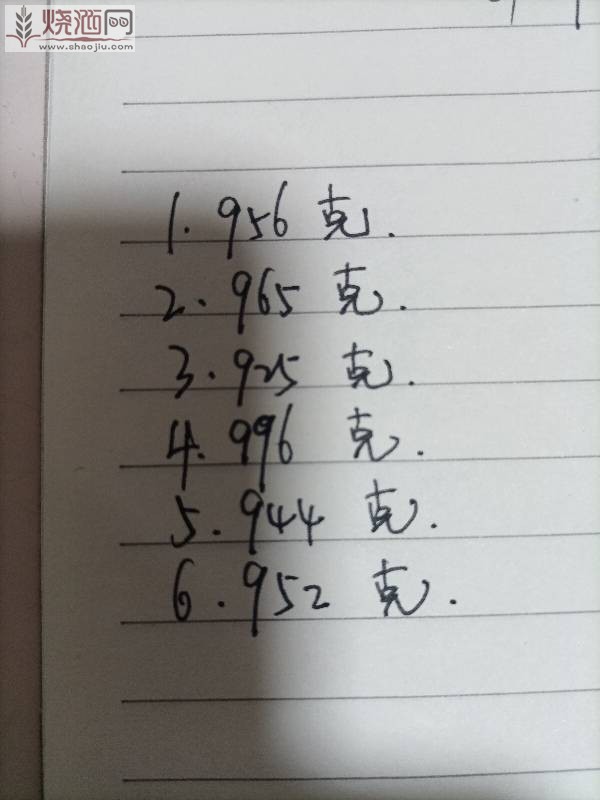 烧酒网
www.shaojiu.com
1. 956 克.
2. 965 克.
3. 925 克.
4. 996 克.
5. 944 克.
6. 952 克.